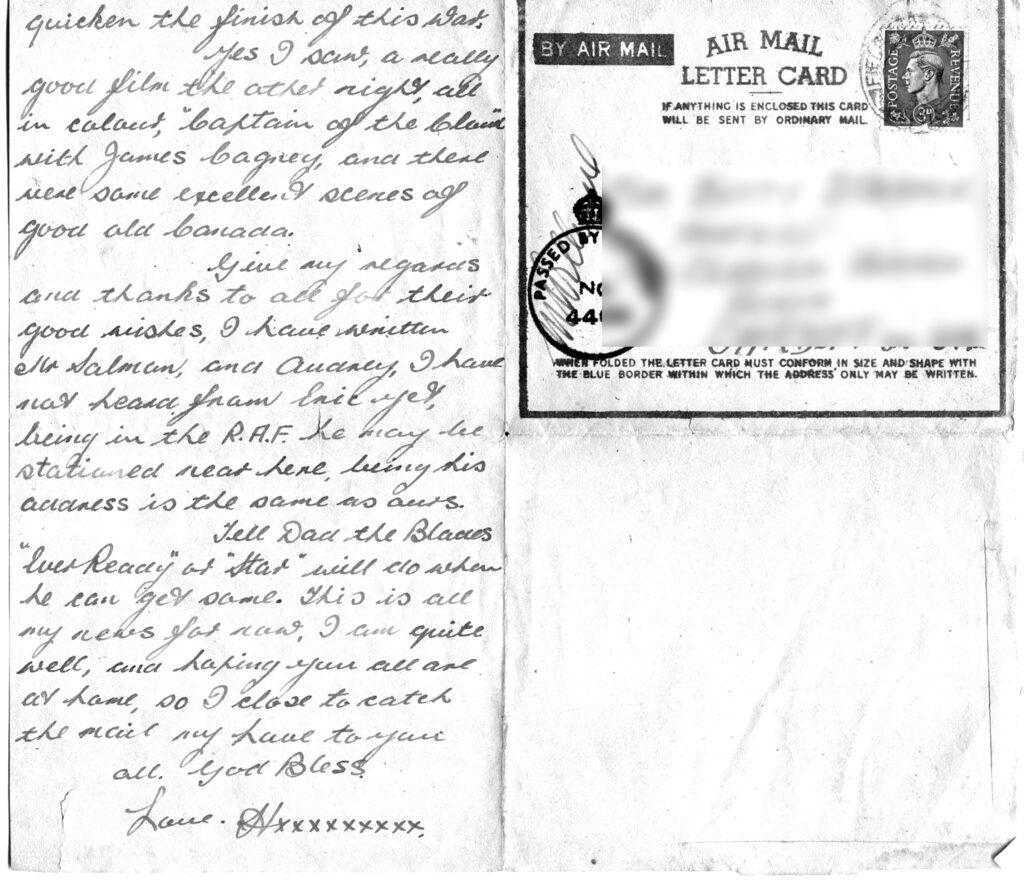 quicken the finish of this war.
Yes I saw, a really
good film the other night, all
in colour, "Captain of the Clouds"
with James Cagney, and there
were some excellent scenes of
good old Canada.
Give my regards
and thanks to all for their
good wishes, I have written
Mr Salman, and Audrey, I have
not heard from Eric yet,
being in the R.A.F. he may be
stationed near here, being his
address is the same as ours.
Tell Dad the Blades
"Ever Ready" or "Star" will do when
he can get some. This is all
my news for now, I am quite
well, and hoping you all are
at home, so I close to catch
the mail my love to you
all. God Bless.
Love. Hxxxxxxxxxx.
BY AIR MAIL
AIR MAIL
LETTER CARD
IF ANYTHING IS ENCLOSED THIS CARD
WILL BE SENT BY ORDINARY MAIL.
POSTAGE
REVENUE
3D
PASSED BY
NO
44
WHEN FOLDED THE LETTER CARD MUST CONFORM IN SIZE AND SHAPE WITH
THE BLUE BORDER WITHIN WHICH THE ADDRESS ONLY MAY BE WRITTEN.